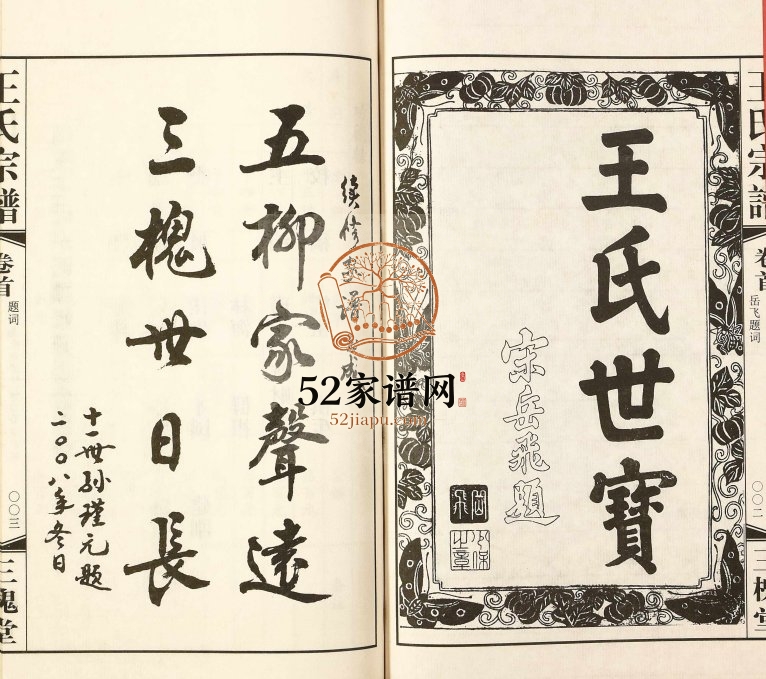 王氏宗譜
卷首
岳飞题词
〇〇二
三槐堂
王氏世寶
宋岳飛題
52家谱网
52jiapu.com
續修家譜
五柳家聲遠
三槐世日長
十一世孙瑾元题
二〇〇八年冬日
王氏宗譜
卷首
题词
〇〇三
三槐堂